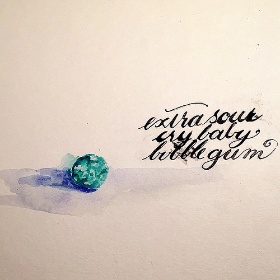 extra sour
cry baby
bubble gum